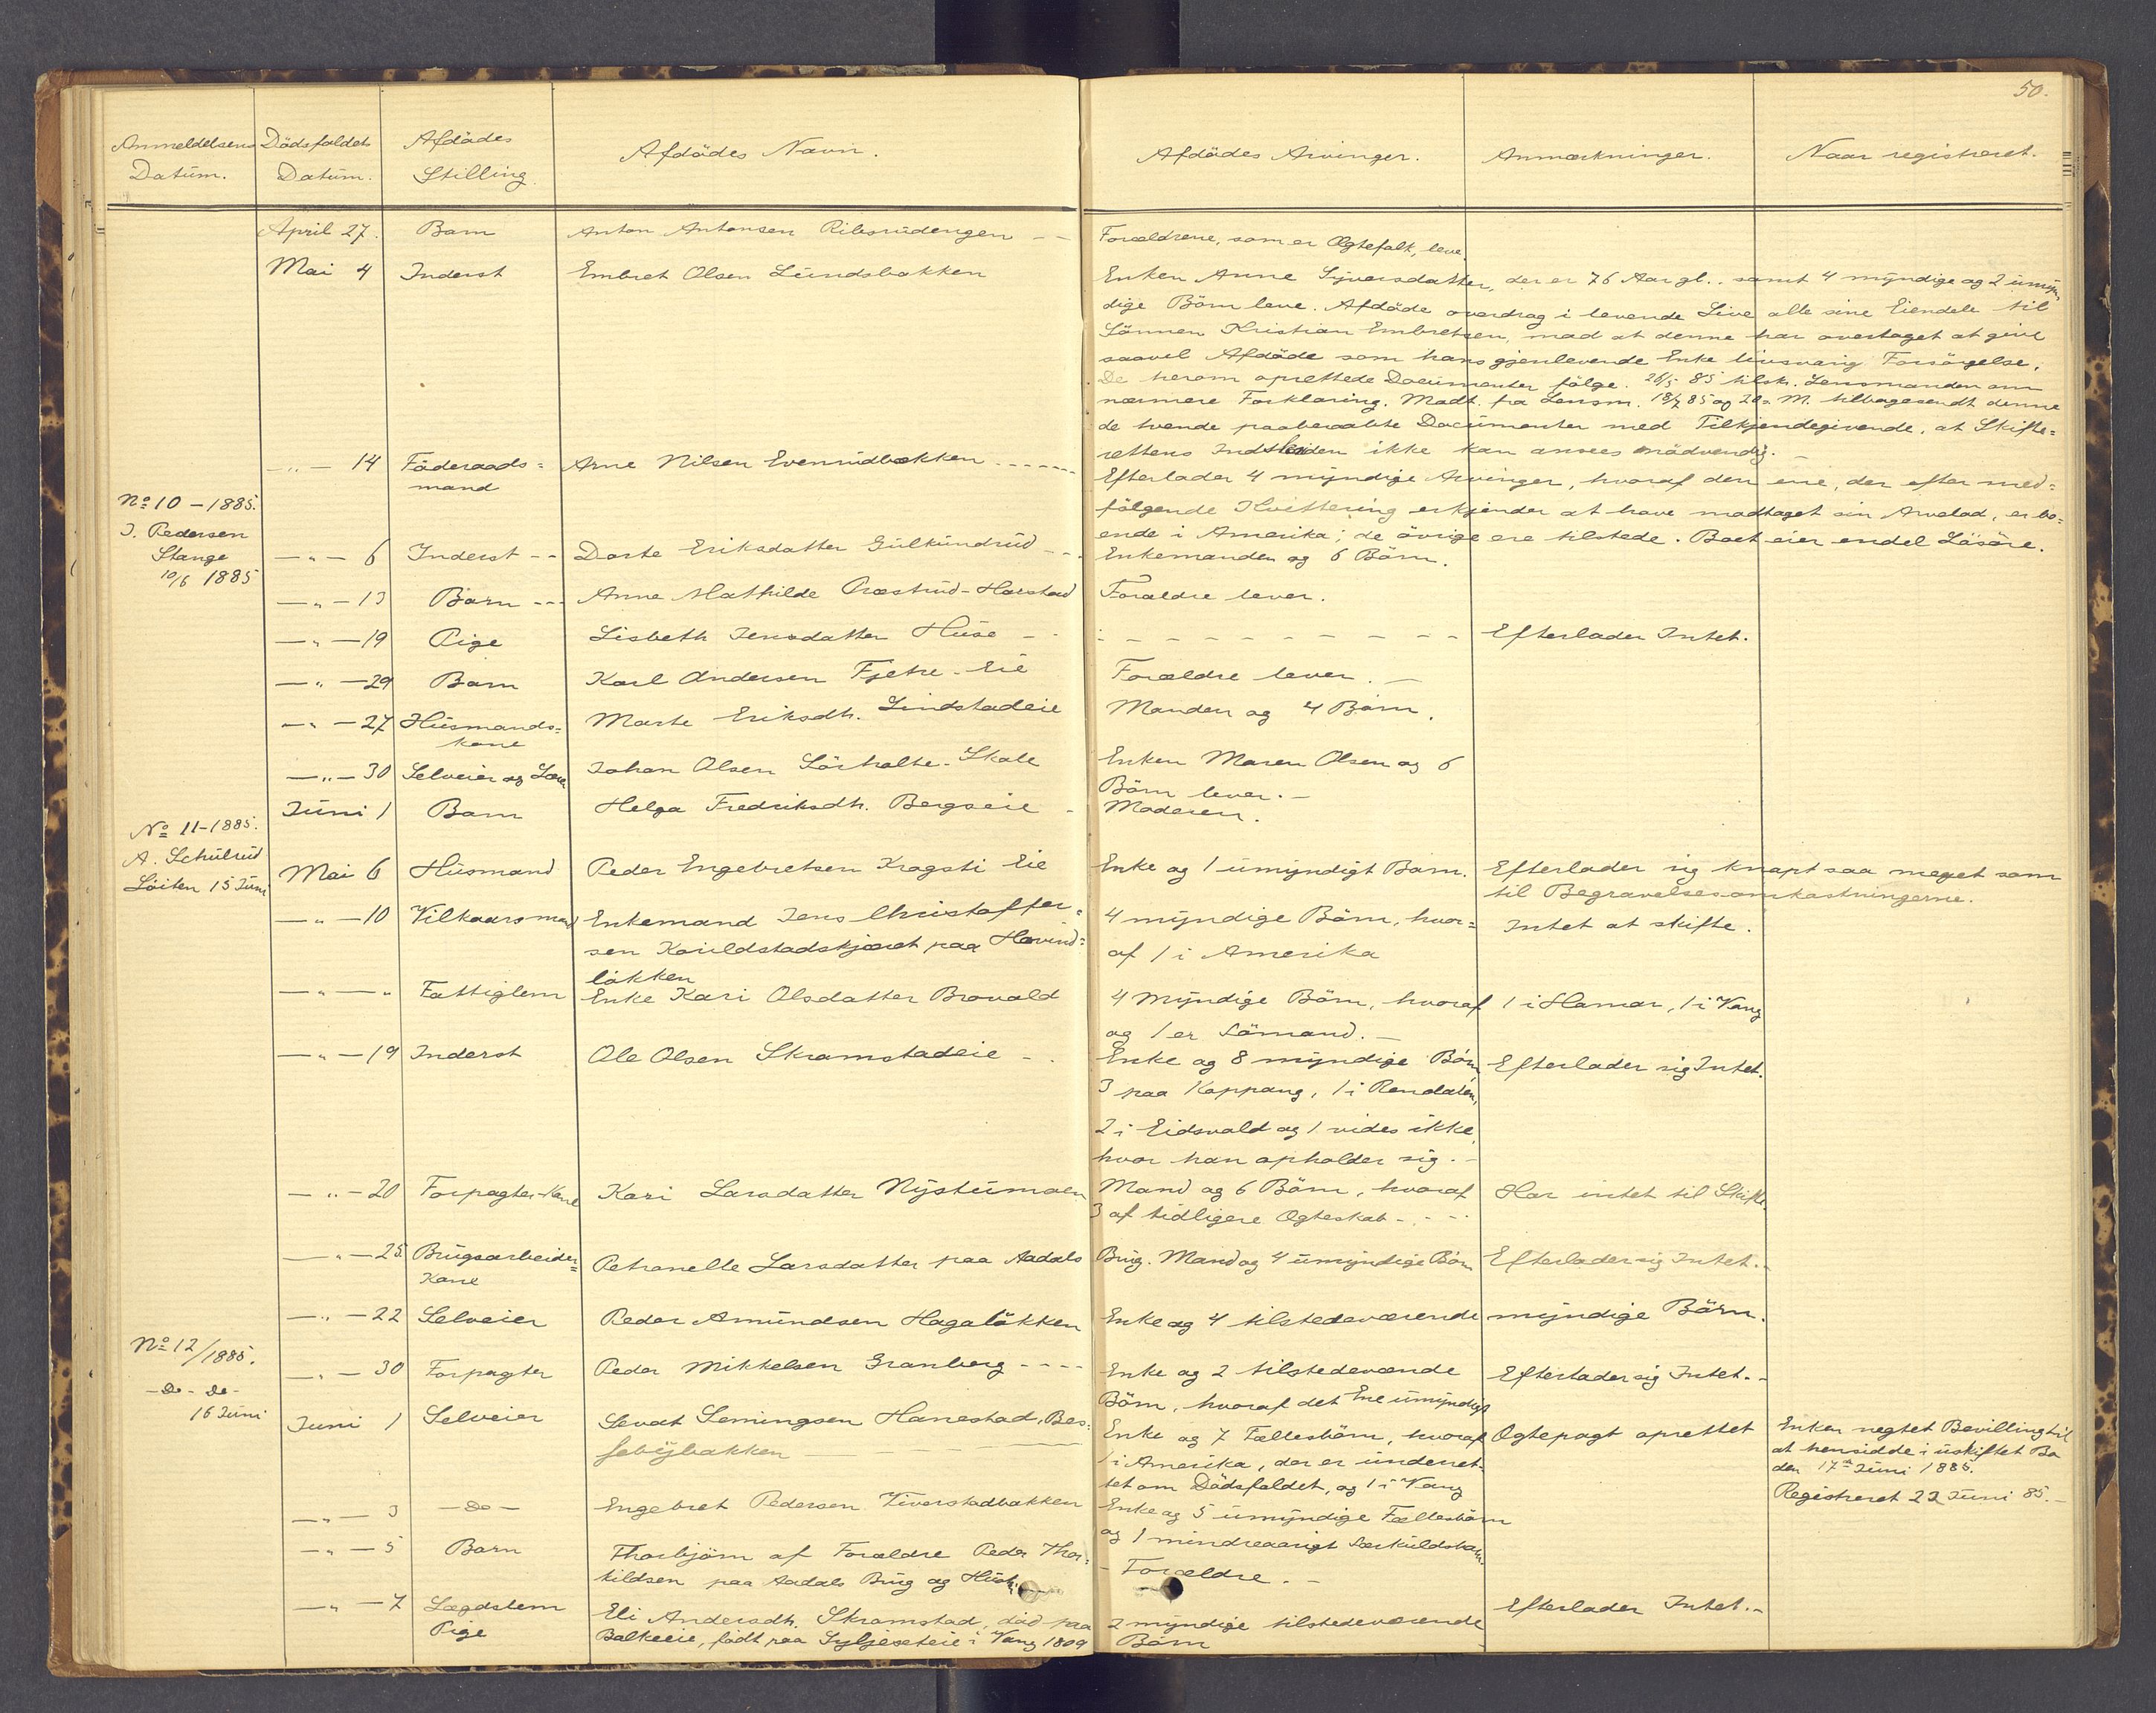 50.
Anmeldelsens Datum. Dödsfaldets Datum. Afdödes Stilling. Afdödes Navn. Afdödes Arvinger. Anmærkninger. Naar registreret.
April 27. Barn Anton Antonsen Rilisrudengen — Forældrene, som er Ægtefolk, leve.
Mai 4 Inderst Embret Olsen Lundsbakken Enken Anne Syversdatter, der er 76 Aar gl.. samt 4 myndige og 2 umyn
dige Börn leve. Afdöde overdrog i levende Live alle sine Eiendele til
Sönnen Kristian Embretsen, mod at denne har overtaget at give
saavel Afdöde som hans gjenlevende Enke livsvarig Forsörgelse.
De herom oprettede Documenter fölge. 26/5 85 tilsk. Lensmanden om
nærmere Forklaring. Modt. fra Lensm. 18/7 85 og 20 s. M. tilbagesendt denne
de tvende paaberaabte Documenter med Tilkjendegivende, at Skifte=
rettens Indskriden ikke kan ansees nödvendig. —
—„— 14 Föderaads=
mand Arne Nilsen Evenrudbakken ------ Efterlader 4 myndige Arvinger, hvoraf den ene, der efter med=
fölgende Kvittering erkjender at have modtaget sin Arvelod, er bo=
ende i Amerika; de övrige ere tilstede. Boet eier endel Lösöre.
No 10 — 1885.
J. Pedersen
Stange
10/6 1885
—„— 6 Inderst -- Dorte Eriksdatter Gulkundrud --- Enkemanden og 6 Börn.
—„— 13 Barn --- Anne Mathilde Præstrud-Harstad Forældre lever.
—„— 19 Pige Lisbeth Jensdatter Huse - - - - - - - - - - Efterlader Intet.
—„— 29 Barn Karl Andersen Fjetre-Eie Forældre lever. —
—„— 27 Husmands=
kone Marte Eriksdtr. Lindstadeie Manden og 4 Börn.
—„— 30 Selveier og Johan Olsen Sörholte-Skole Enken Maren Olsen og 6
Börn lever. —
Juni 1 Barn Helga Fredriksdtr. Bergseie - Moderen.
No 11-1885.
A. Schulrud
Löiten 15 Juni
Mai 6 Husmand Peder Engebretsen Kragsti Eie Enke og 1 umyndigt Barn. Efterlader sig knapt saa meget som
til Begravelsesomkostningerne.
—„— 10 Vilkaarsmand Enkemand Jens Christoffer=
sen Karildstadskjæret paa Hovind=
lökken 4 myndige Börn, hvor=
af 1 i Amerika Intet at skifte.
—„—„ Fattiglem Enke Kari Olsdatter Brovald 4 myndige Börn, hvoraf 1 i Hamar, 1 i Vang
og 1 er Sömand. —
—„— 19 Inderst Ole Olsen Skramstadeie - . Enke og 8 myndige Börn Efterlader sig Intet.
3 paa Koppang, 1 i Rendalen,
2 i Eidsvold og 1 vides ikke,
hvor han opholder sig. —
—„— 20 Forpagter-Kone Kari Larsdatter Nystumoen Mand og 6 Börn, hvoraf
3 af tidligere Ægteskab - - - Har intet til Skifte.
—„— 25. Brugsarbeider=
Kone Petronelle Larsdatter paa Aadals Brug. Mand og 4 umyndige Börn Efterlader sig Intet. -
—„— 22 Selveier Peder Amundsen Hagalökken Enke og 4 tilstedeværende myndige Börn.
No 12/1885.
- Do - Do -
16 Juni
—„— 30 Forpagter Peder Mikkelsen Granberg ---- Enke og 2 tilstedeværende
Börn, hvoraf det Ene umyndigt Efterlader sig Intet. -
Juni 1 Selveier Sevat Semingsen Hanestad, Bes=
sebybakken Enke og 7 Fællesbörn, hvoraf
1 i Amerika, der er underret=
tet om Dödsfaldet, og 1 i Vang Ægtepagt oprettet Enken negtet Bevilling til
at hensidde i uskiftet Bo
den 17de Juni 1885.
Registreret 22 Juni 85. —
—„— 3 - Do - Engebret Pedersen Tiverstadbakken Enke og 5 umyndige Fællesbörn
og 1 mindreaarigt Særkuldsbarn.
—„— 5 Barn Thorbjörn af Forældre Peder Thor=
kildsen paa Aadals Brug og Hustr. - Forældre. —
—„— 7 Lægdslem
Pige Eli Andersdtr. Skramstad, död paa
Balkeeie, födt paa Syljeseteie i Vang 1809 2 myndige tilstedeværende
Börn Efterlader Intet. -